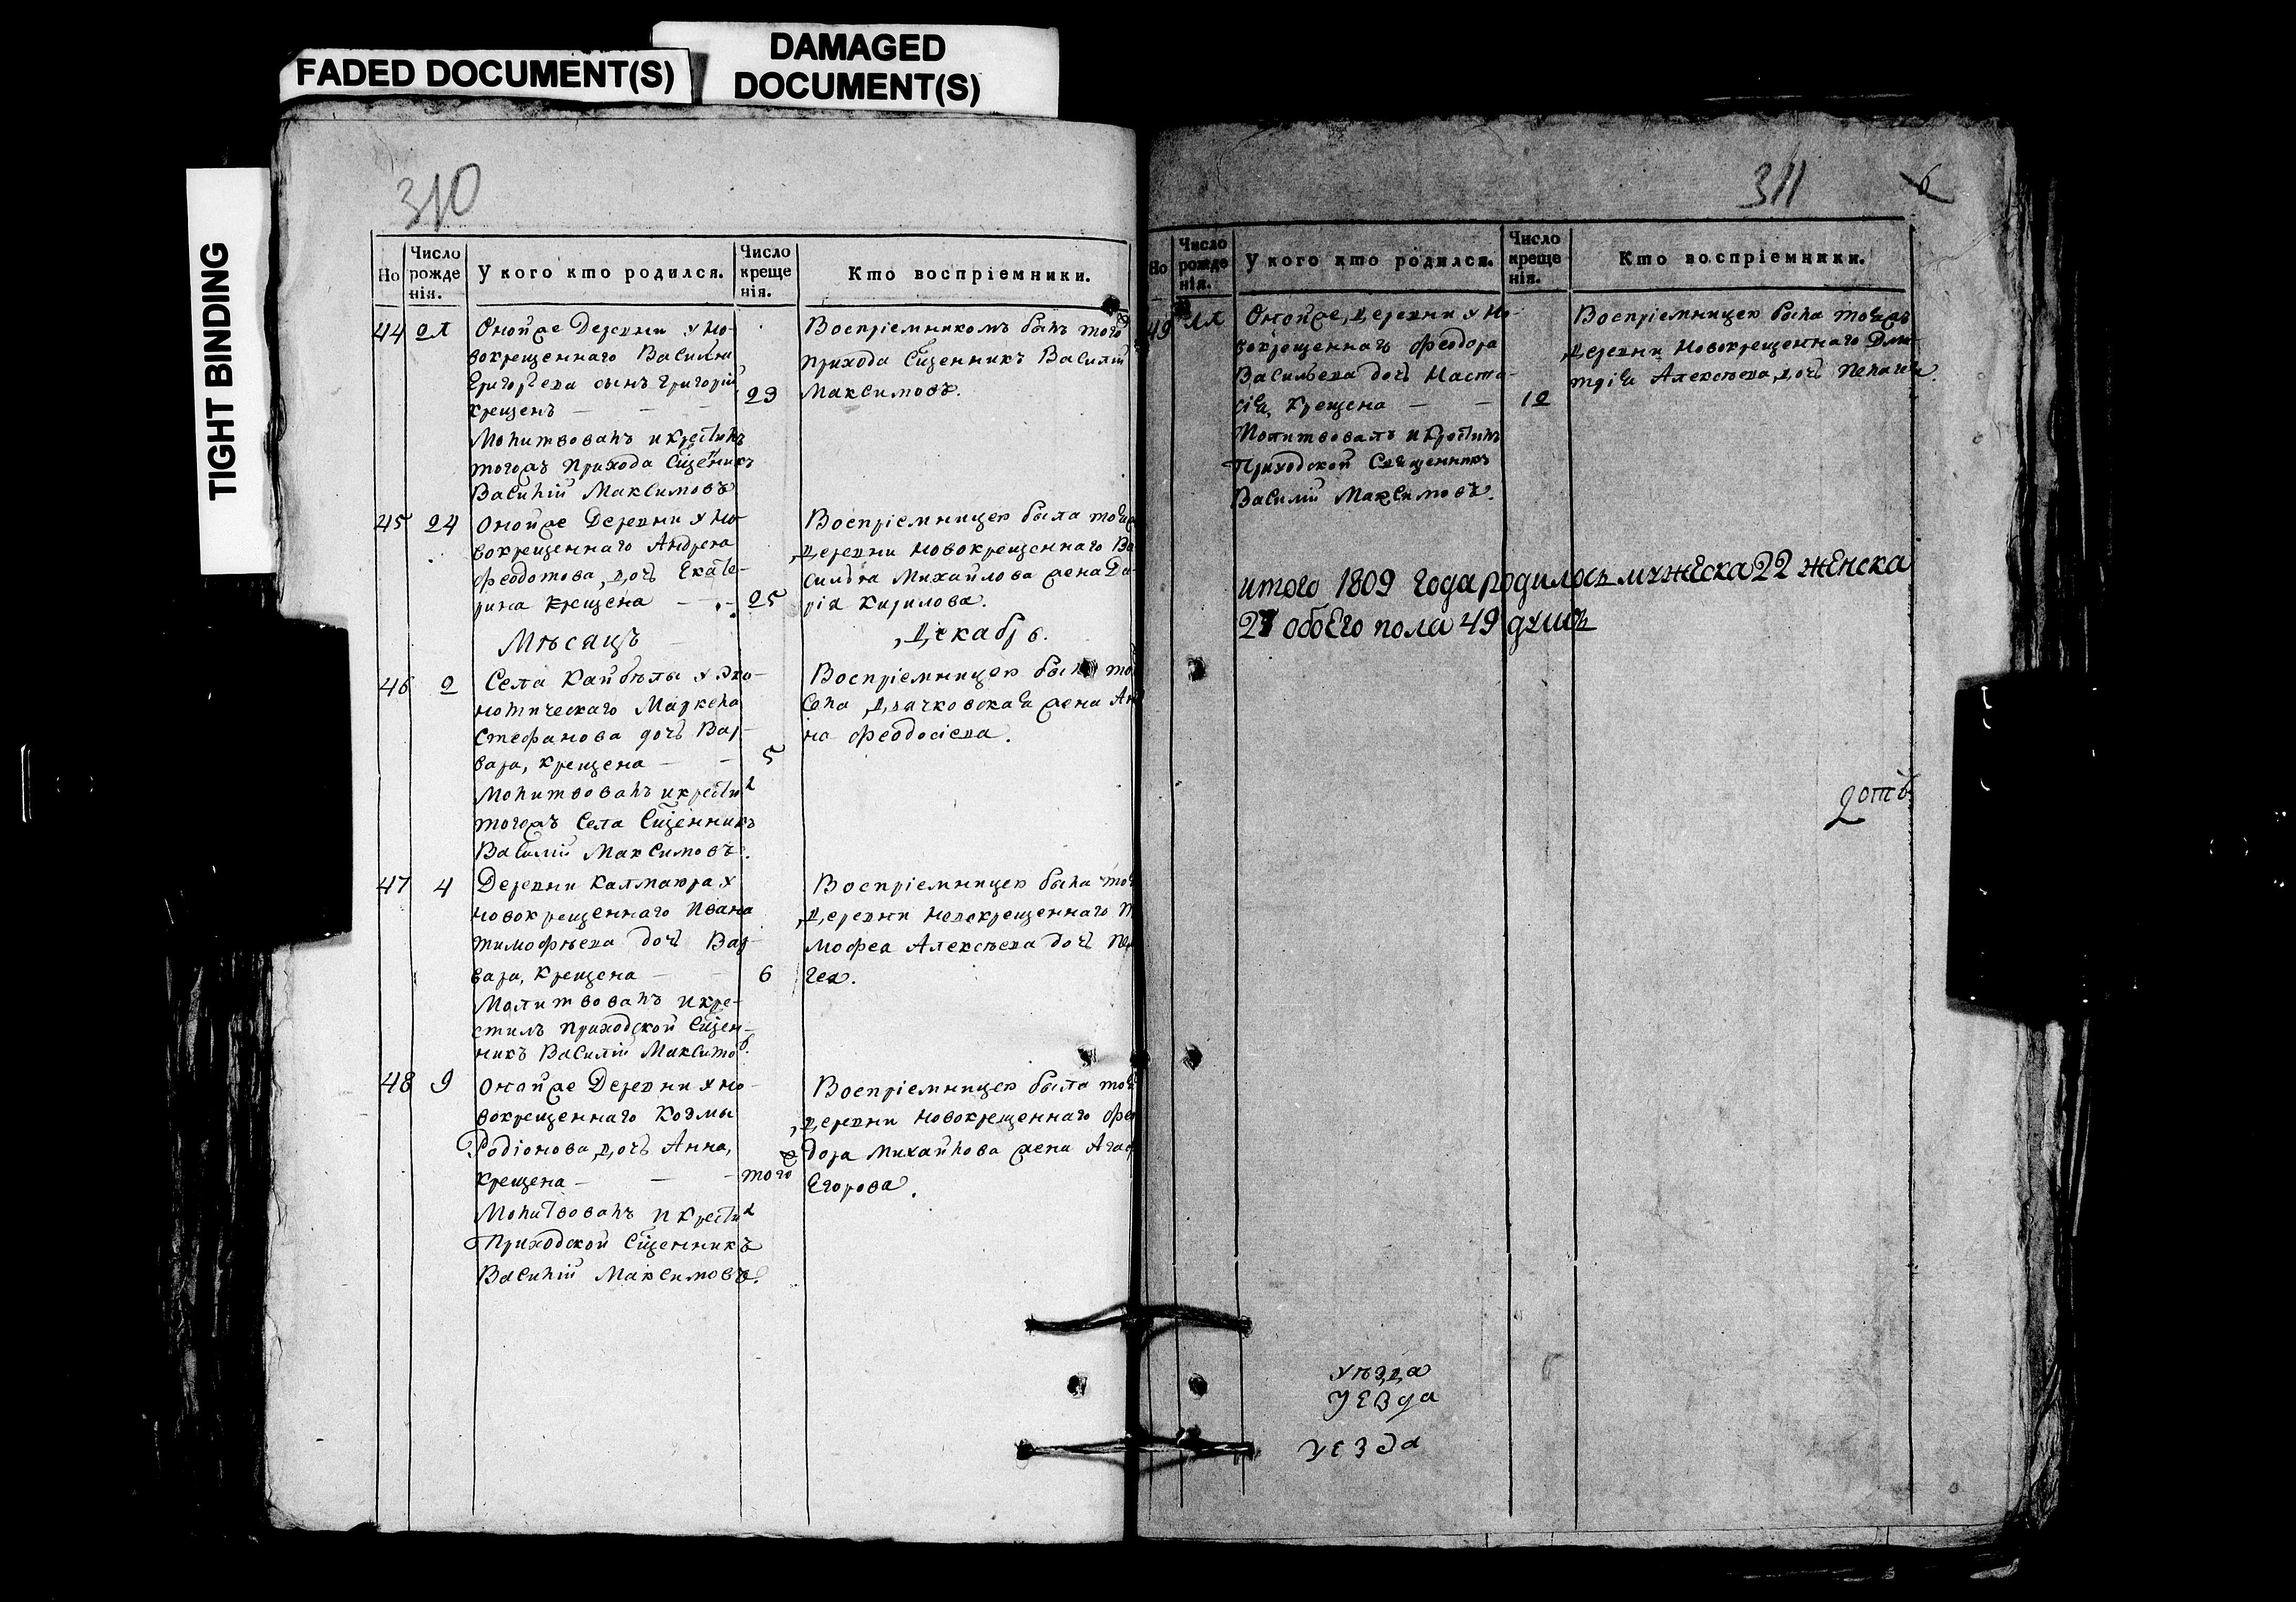 FADED DOCUMENT(S)
DAMAGED
DOCUMENT(S)
TIGHT BINDING
310
Но
Число
рожде
нія.
У кого кто родился.
Число
креще
нія.
Кто воспріемники.
44
Оной же Деревни у но-
вокрещеннаго Василья
Григорьева сынъ Григорій
крещенъ — — — 23
Молитвовалъ и крестилъ
тогожъ прихода Сщенникъ
Василій Максимовъ
Воспріемникомъ былъ тогож
прихода Сщенникъ Василий
Максимовъ.
45 24
Оной же Деревни у но-
вокрещеннаго Андрея
Федотова, дочь Екате-
рина крещена — — 25
Воспріемницею была тоя
деревни новокрещеннаго Ва
силья Михайлова жена Да-
рія Кирилова.
Мѣсяцъ
Декабрь.
46 2
Села Кайбѣлы у эко-
номическаго Маркела
Стефанова дочь Вар-
вара, крещена — — 5
Молитвовалъ и крестил
тогожъ Села Сщенникъ
Василій Максимовъ.
Воспріемницею была той
села дьячковская жена Ан
на Феодосіева.
47 4
Деревни Калмаюра у
новокрещеннаго Ивана
Тимофѣева дочь Вар-
вара, крещена — — 6
Молитвовалъ и кре-
стилъ приходской Сщен-
никъ Василій Максимов.
Воспріемницею была тоя
деревни новокрещеннаго Ти
мофея Алексѣева дочь Пела
гея.
48 9
Оной же Деревни у но-
вокрещеннаго Козмы
Родіонова, дочь Анна,
крещена — — — тогож
Молитвовалъ и крестил
Приходской Сщенникъ
Василій Максимовъ.
Воспріемницею была тоя
деревни новокрещеннаго Фео
дора Михайлова жена Агаф
Егорова.
311
6
Но
Число
рожде
нія.
У кого кто родился.
Число
креще
нія.
Кто воспріемники.
49
Оной же, деревни у но-
вокрещеннаго Феодора
Васильева дочь Наста-
сія, крещена — — 12
Молитвовалъ и крестилъ
Приходской Священникъ
Василій Максимовъ.
Воспріемницею была тояжъ
деревни новокрещеннаго Дми-
трія Алексѣева, дочь Пелагея.
итого 1809 года родилось мужеска 22 женска
27 обоего пола 49 душъ
уѣзда
уезда
уезда